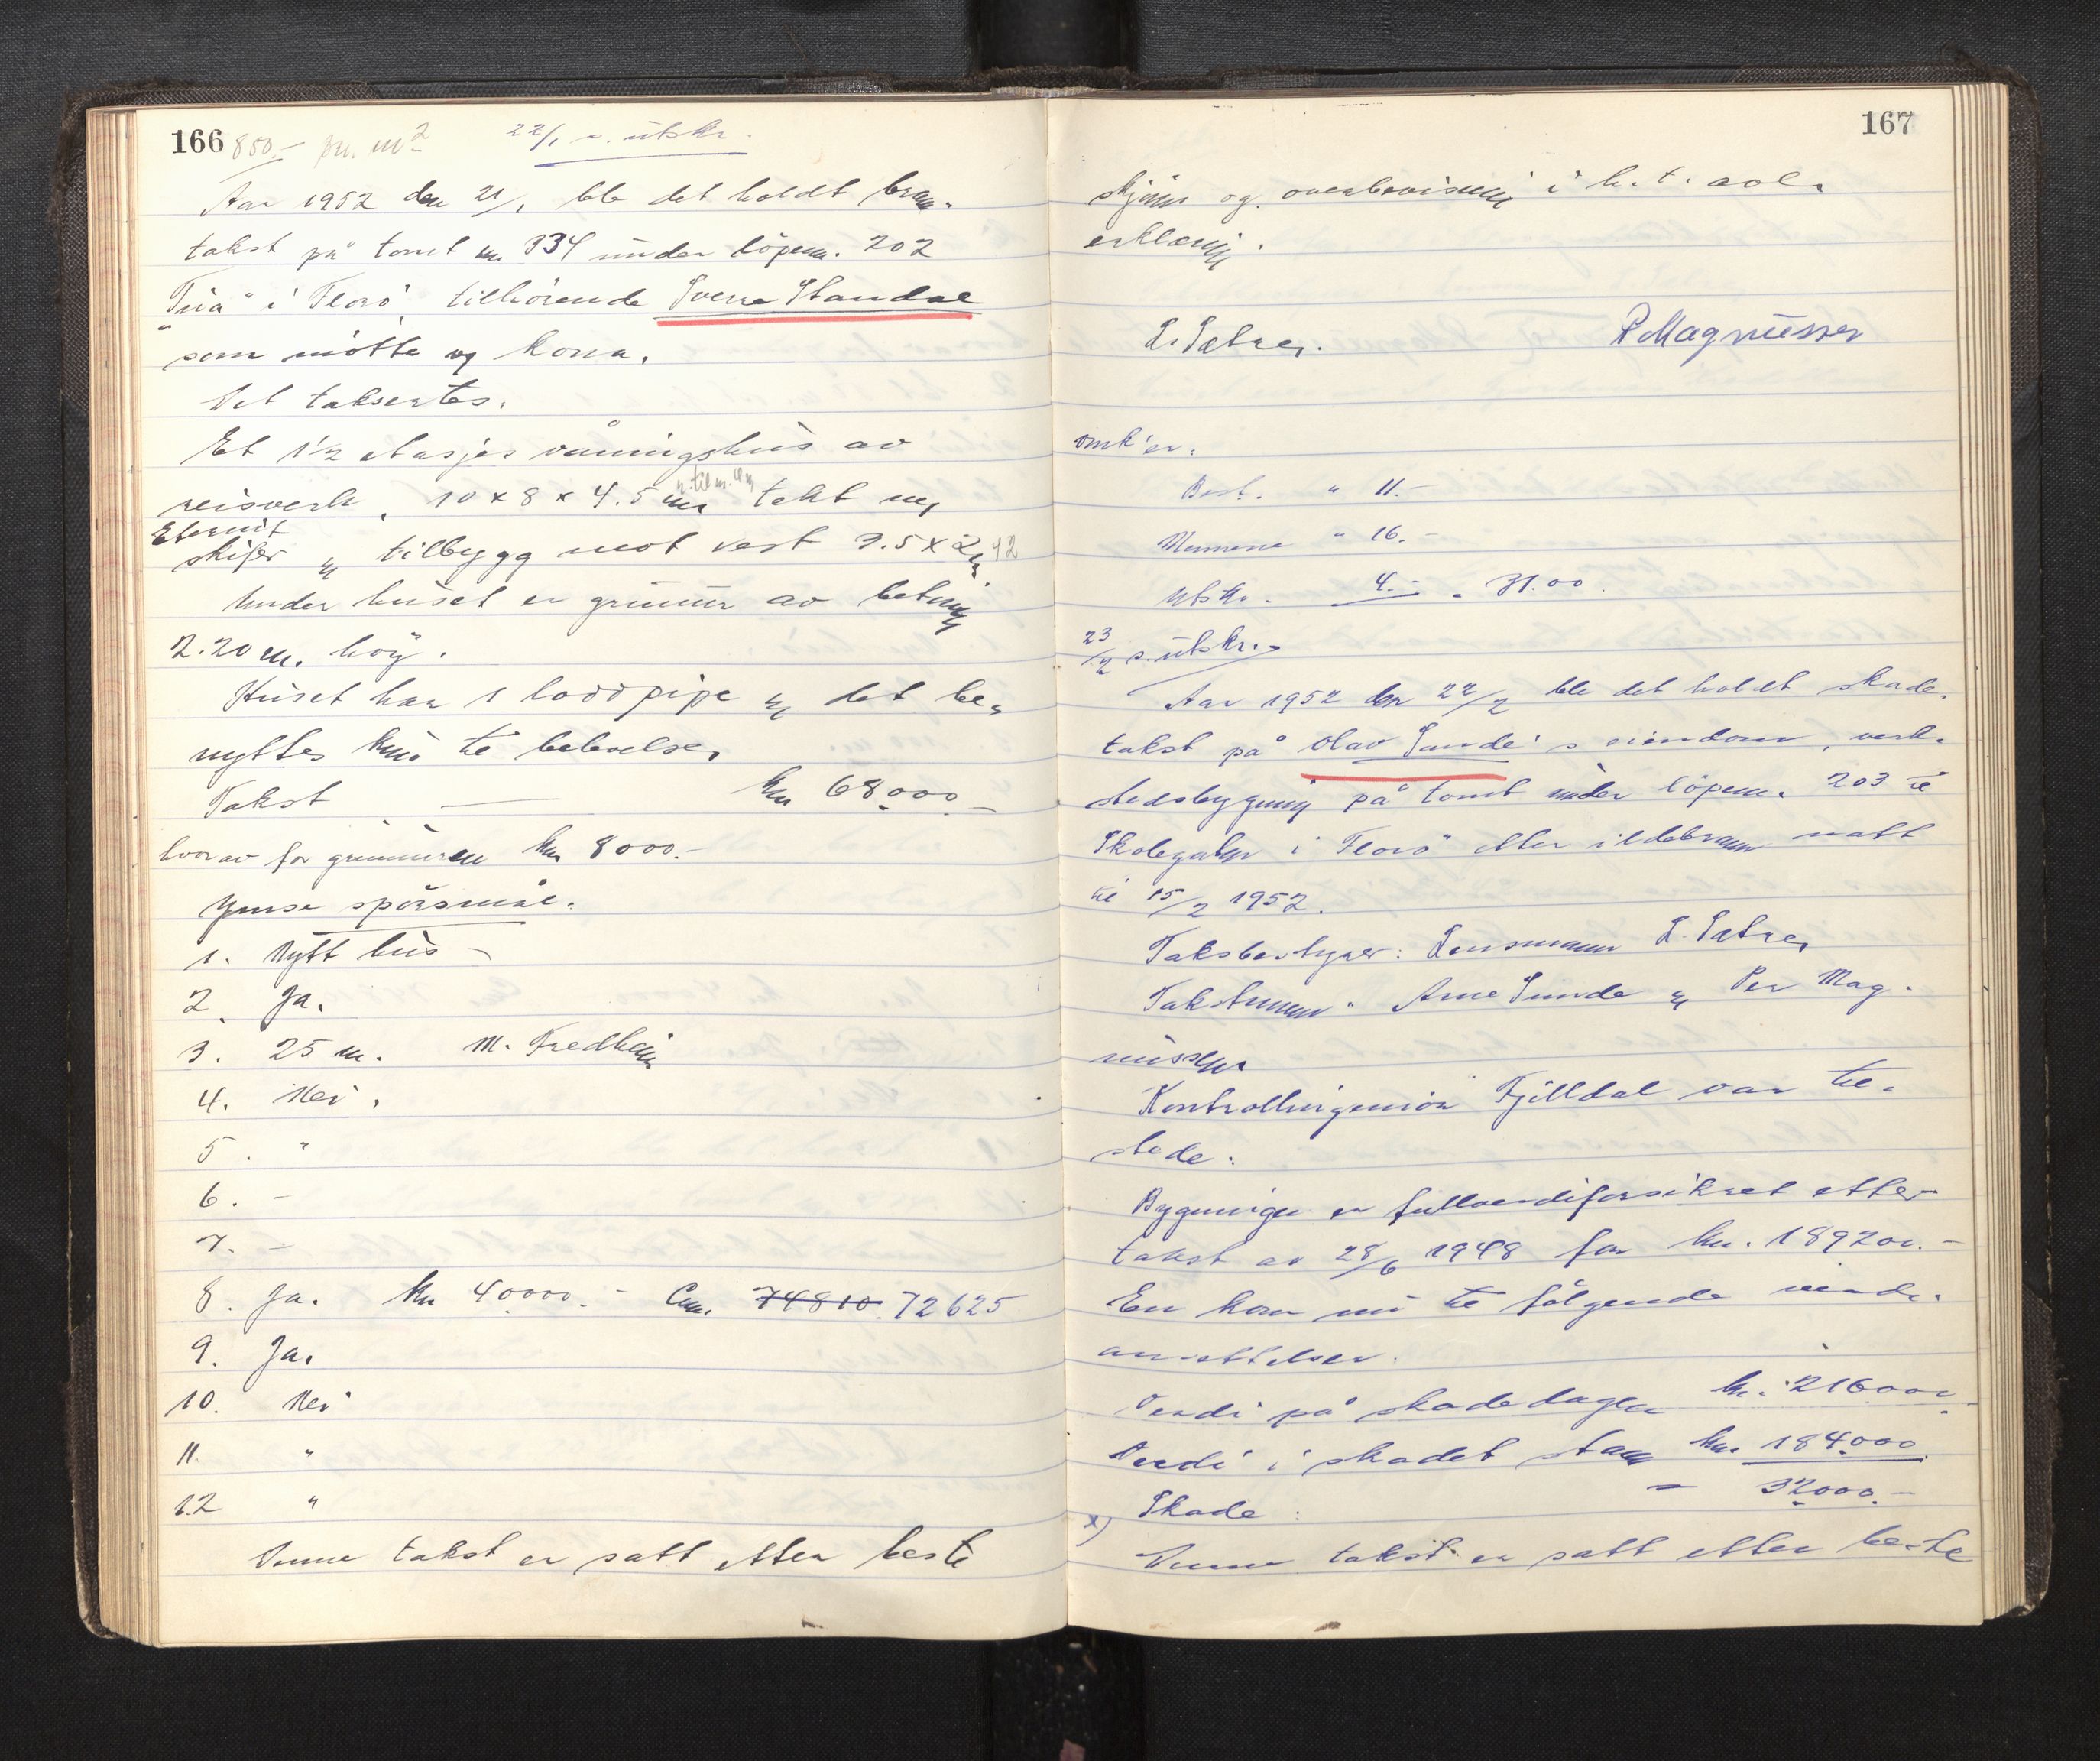 166 850.- pr. m2 22/1 s. utskr.
Aar 1952 den 21/1 ble det holdt bran-
takst på tomt nr. 334 under löpenr. 202
"Tua" i Florö tilhörende Sverre Standal
som mötte og kona.
Det taksertes.
Et 1½ etasjes våningshus av
reisverk, 10 x 8 x 4.5 m tekt m/
Eternit
skifer og tilbygg mot vest 3.5 x 2 m
Under huset er grunnur av betong
2.20 m. höy.
Huset har 1 loddpipe og det be-
nyttes kun til beboelse.
Takst — kr 68000.-
hvorav for grunnuren kr 8000.-
Ymse spörsmål.
1. Nytt hus -
2. Ja.
3. 25 m. M. Fredheim
4. Nei.
5. "
6. -
7. -
8. Ja. kr 40000.- 74810. 72625
9. Ja.
10. Nei
11. "
12 "
Denne takst er satt etter beste
167
skjönn og overbevisning i h.t. avl.
erklæring.
L. Sætren. P Magnussen
omk'er.
Best. " 11.-
Mennene " 16.-
Utskr. 4.- " 31.00
23/2 s. utskr.
Aar 1952 den 22/2 ble det holdt skade-
takst på Olav Sunde's eiendom, verk-
stedsbygning på tomt under löpenr. 203 i
Skolegaten i Florö etter ildebrann natt
til 15/2 1952.
Takstbestyrer: Lensmann L. Sætren
Takstmenn: Arne Sunde og Per Mag-
nussen
Kontrollingeniör Fjelldal var til-
stede.
Bygningen er fullverdiforsikret etter
takst av 28/6 1948 for kr. 189200.-
En kom nu til fölgende verdi-
ansettelser.
Verdi på skadedagen kr. 216000.-
Verdi i skadet stand kr. 184.000
Skade: = 32000.-
x) Denne takst er satt etter beste